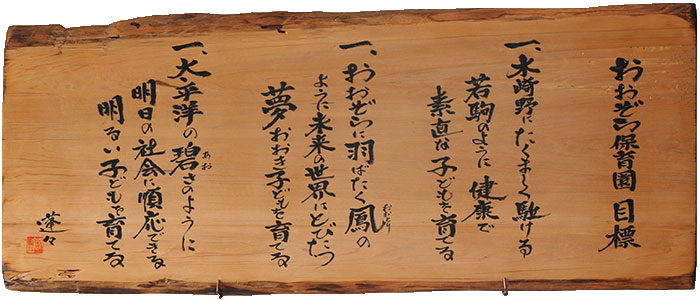 おおぞら保育園 目標
一、木崎野にたくましく駈ける
若駒のように 健康で
素直な 子どもを育てる
一、おおぞらに羽ばたく鳳の
おおとり
ように未来の世界にとびたつ
夢おおき子どもを育てる
一、太平洋の碧さのように
あお
明日の社会に順応できる
明るい子どもを育てる
蓬々